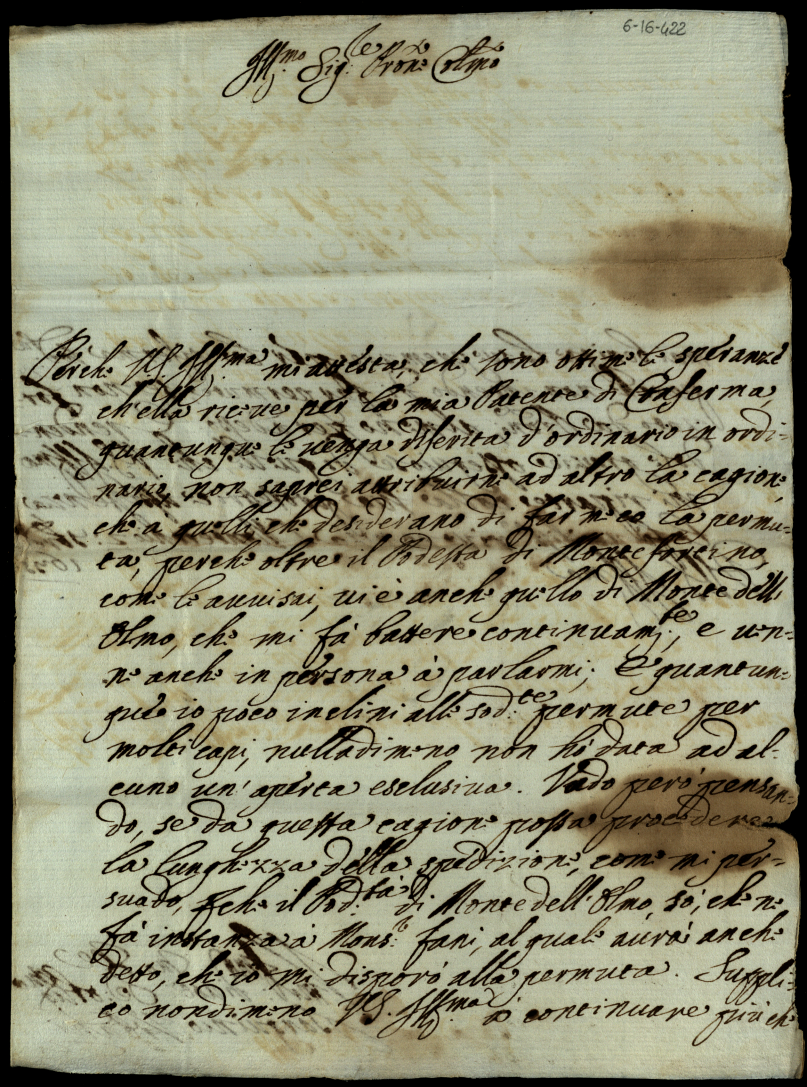 6-16-422
Ill.mo Sig.re Pron.e Col.mo
Perche VS. Ill.ma m'attesta, che sono ottime le speranze
ch'ella riceve per la mia Patente di Conferma,
quantunque le venga diferita d'ordinario in ordi-
nario, non saprei attribuirne ad altro la cagione,
che a quelli che desiderano di far meco la permu-
ta, perche oltre il Podestà di Montefortino,
come le avvisai, vi è anche quello di Monte dell'
Olmo, che mi fà battere continuam.te, e ven-
ne anche in persona à parlarmi; E quantun-
que io poco inclini alle sod.te permute per
molti capi, nulladimeno non hò data ad al-
cuno un' aperta esclusiva. Vado però pensan-
do, se da questa cagione possa procedere
la lunghezza della spedizione, come mi per-
suado, che il Pod.tà di Monte dell'Olmo, sò, che ne
fà instanza à Mons.re Fani, al quale avrà anche
detto, che io mi disporò alla permuta. Suppli-
co nondimeno VS. Ill.ma à continuare più che